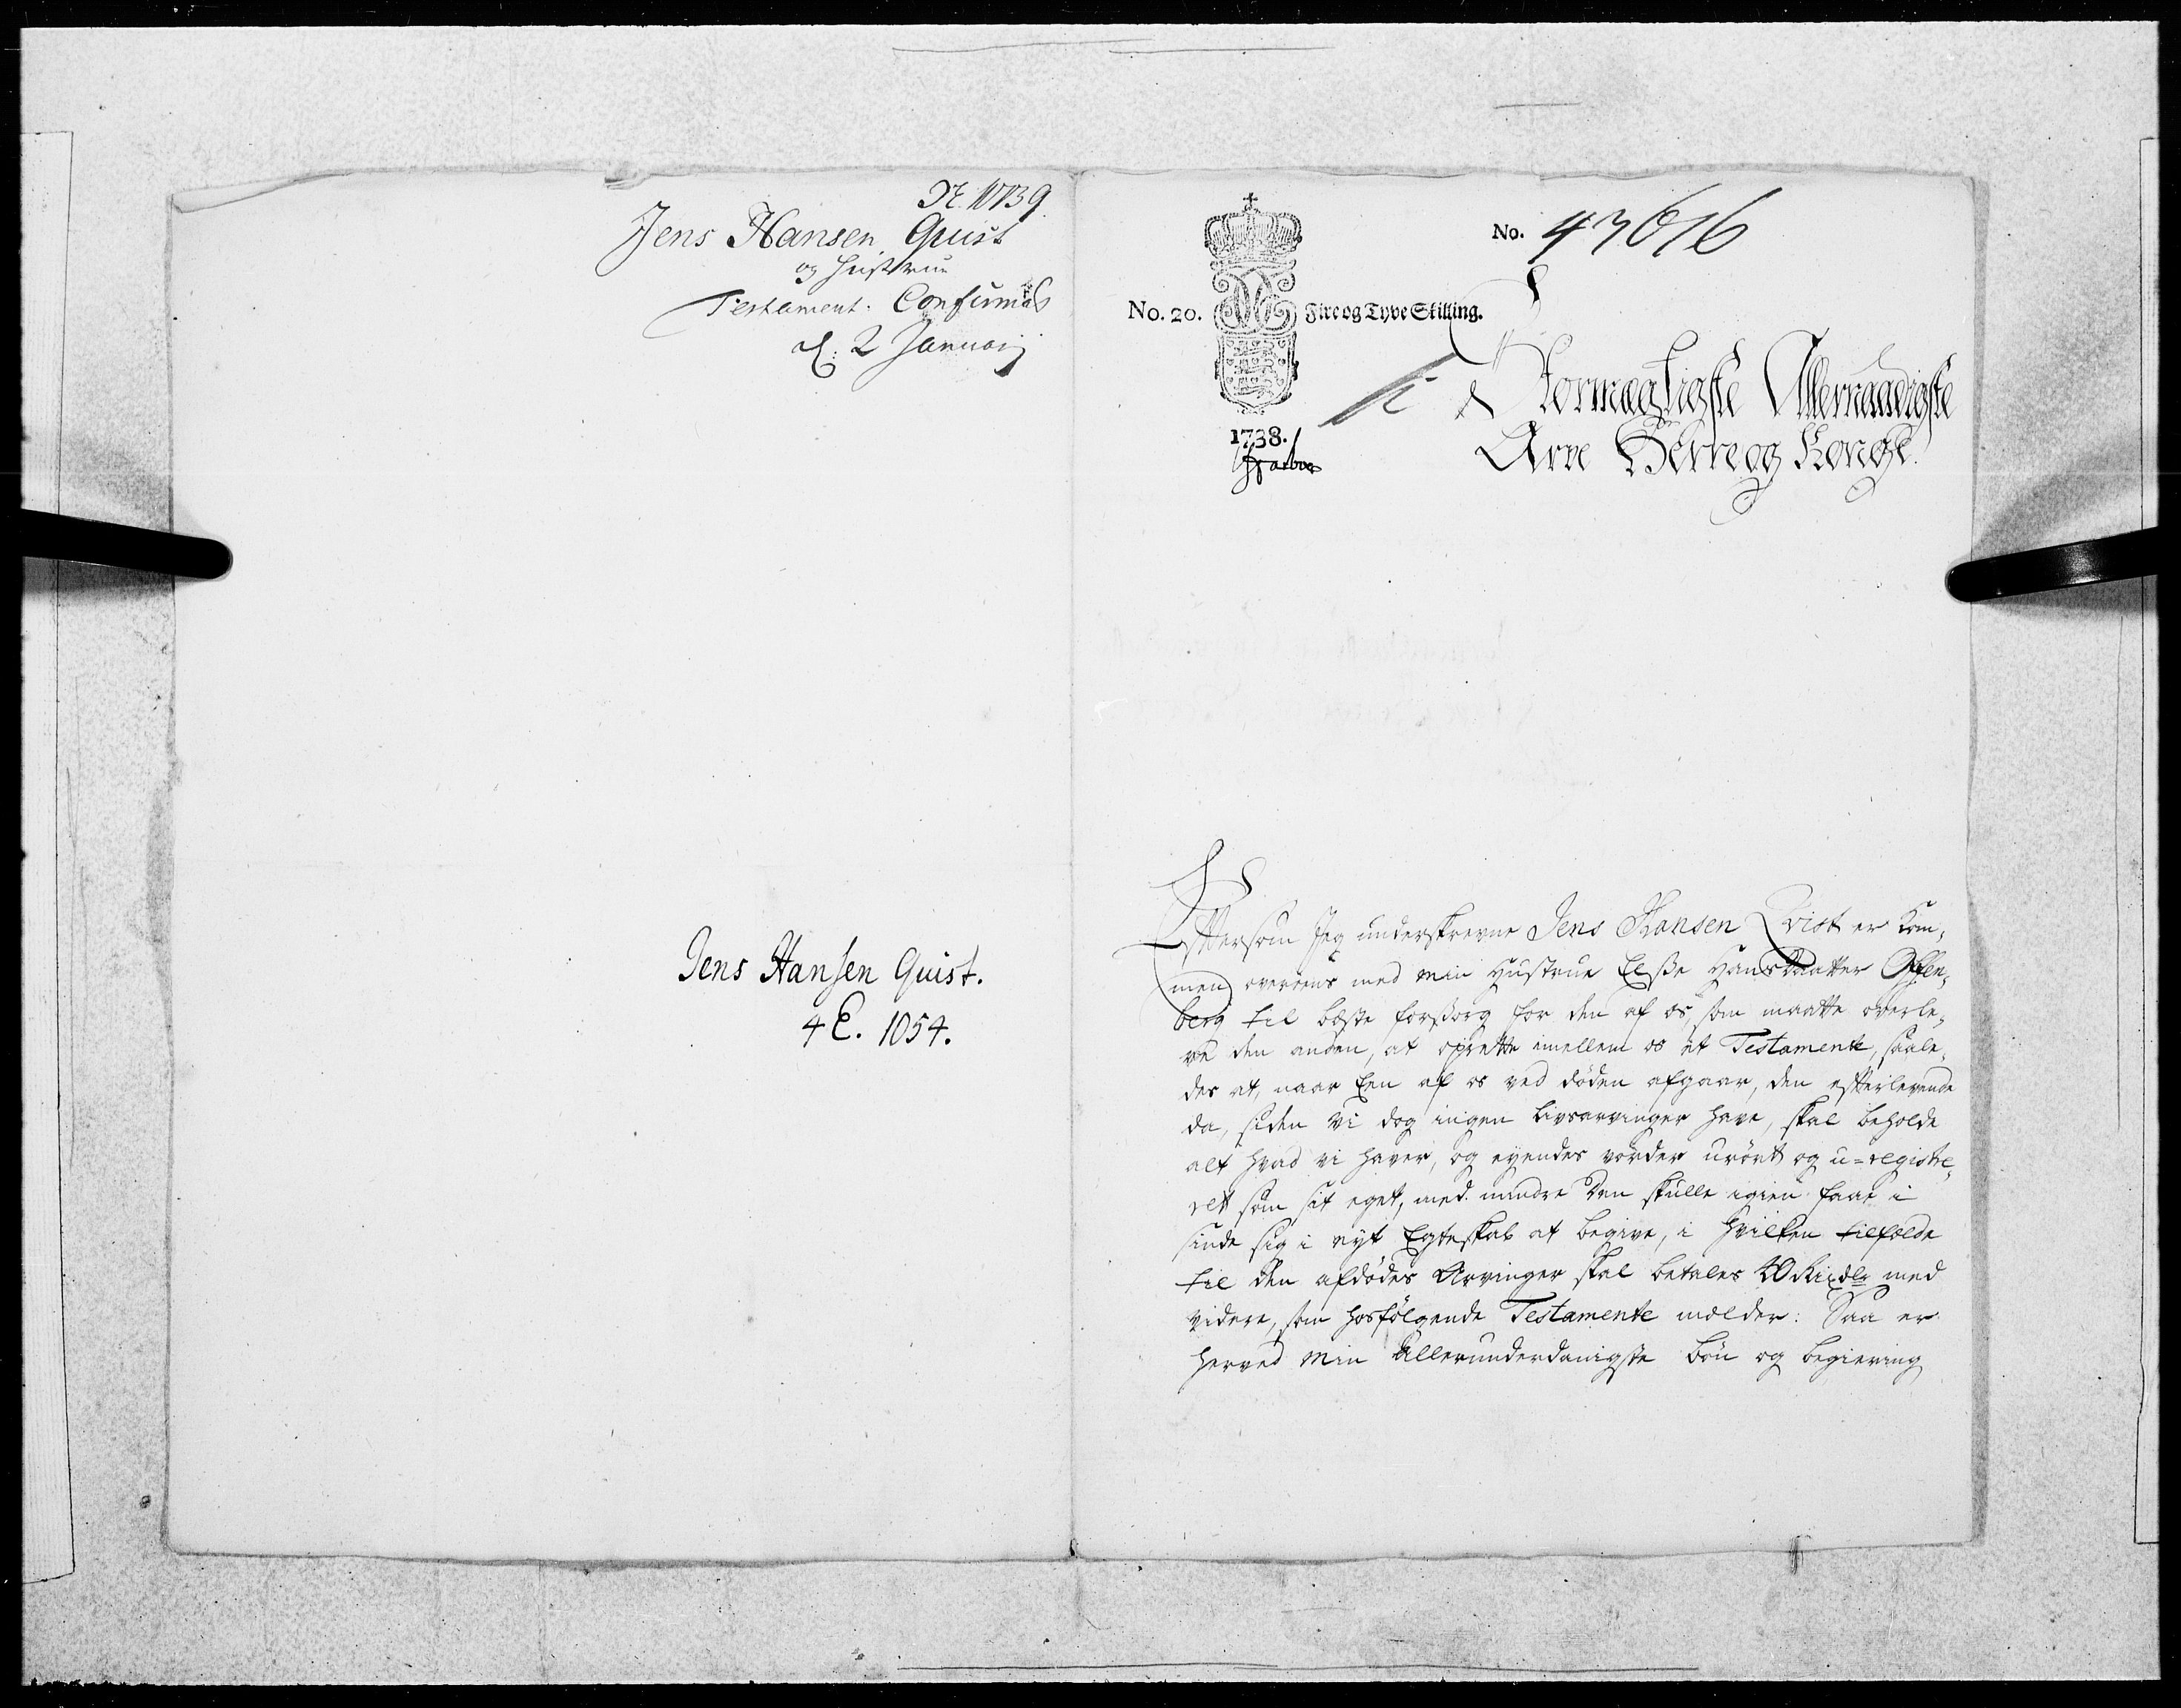 1739
Jens Hansen Quist
og Hustrue
Testament. Confirmats
d. 2 Januarij
Jens Hansen Quist.
4 E. 1054.
No. 43616
No. 20. Fire og Tyve Skilling.
1738.
Stormægtigste Allernaadigste
Arve Herre og Konge
Efftersom Jeg underskrevne Jens Hansen Qvist er kom,
men overeens med min Hustrue Else HansDaatter Offen,
berg til beste forsorg for den af os, som maatte overle,
ve den anden, at oprette imellem os et Testamente, saale,
des at, naar Een af os ved døden afgaar, den efterlevende
da, siden vi dog ingen livsarvinger have, skal beholde
alt hvad vi haver, og eyendes vorder urørt og u-registre,
ret som sit eget, med mindre den skulle igien faae i
sinde sig i nyt Egteskab at begive, i hvilken tilfelde
til den afdødes Arvinger skal betales Rixdlr med
videre, som hosfølgende Testamente melder: Saa er
herved min Allerunderdanigste bøn og begiering